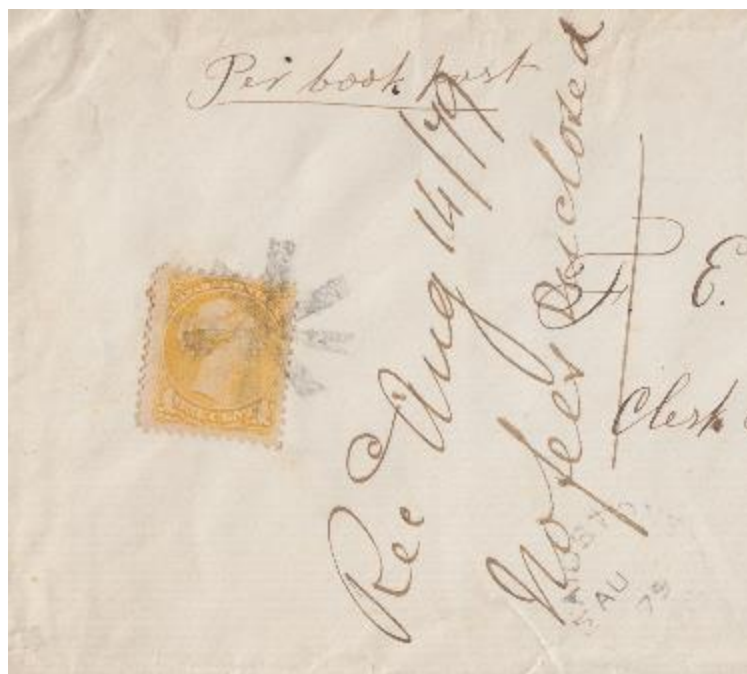 Per book post
Rec Aug 14/79
No fees Enclosed
E.
Clerk
ONE CENT
AU
79